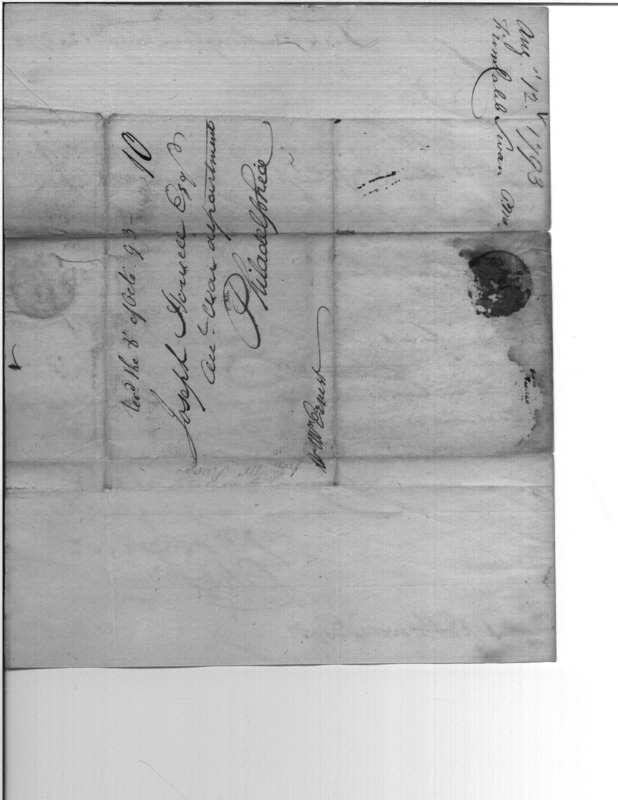 Augt 12. 1793
From Caleb Swan PMr.
10
Recd the 8th of Octr. 93 -
Joseph Howell Esqr
Acct. War department
Philadelphia